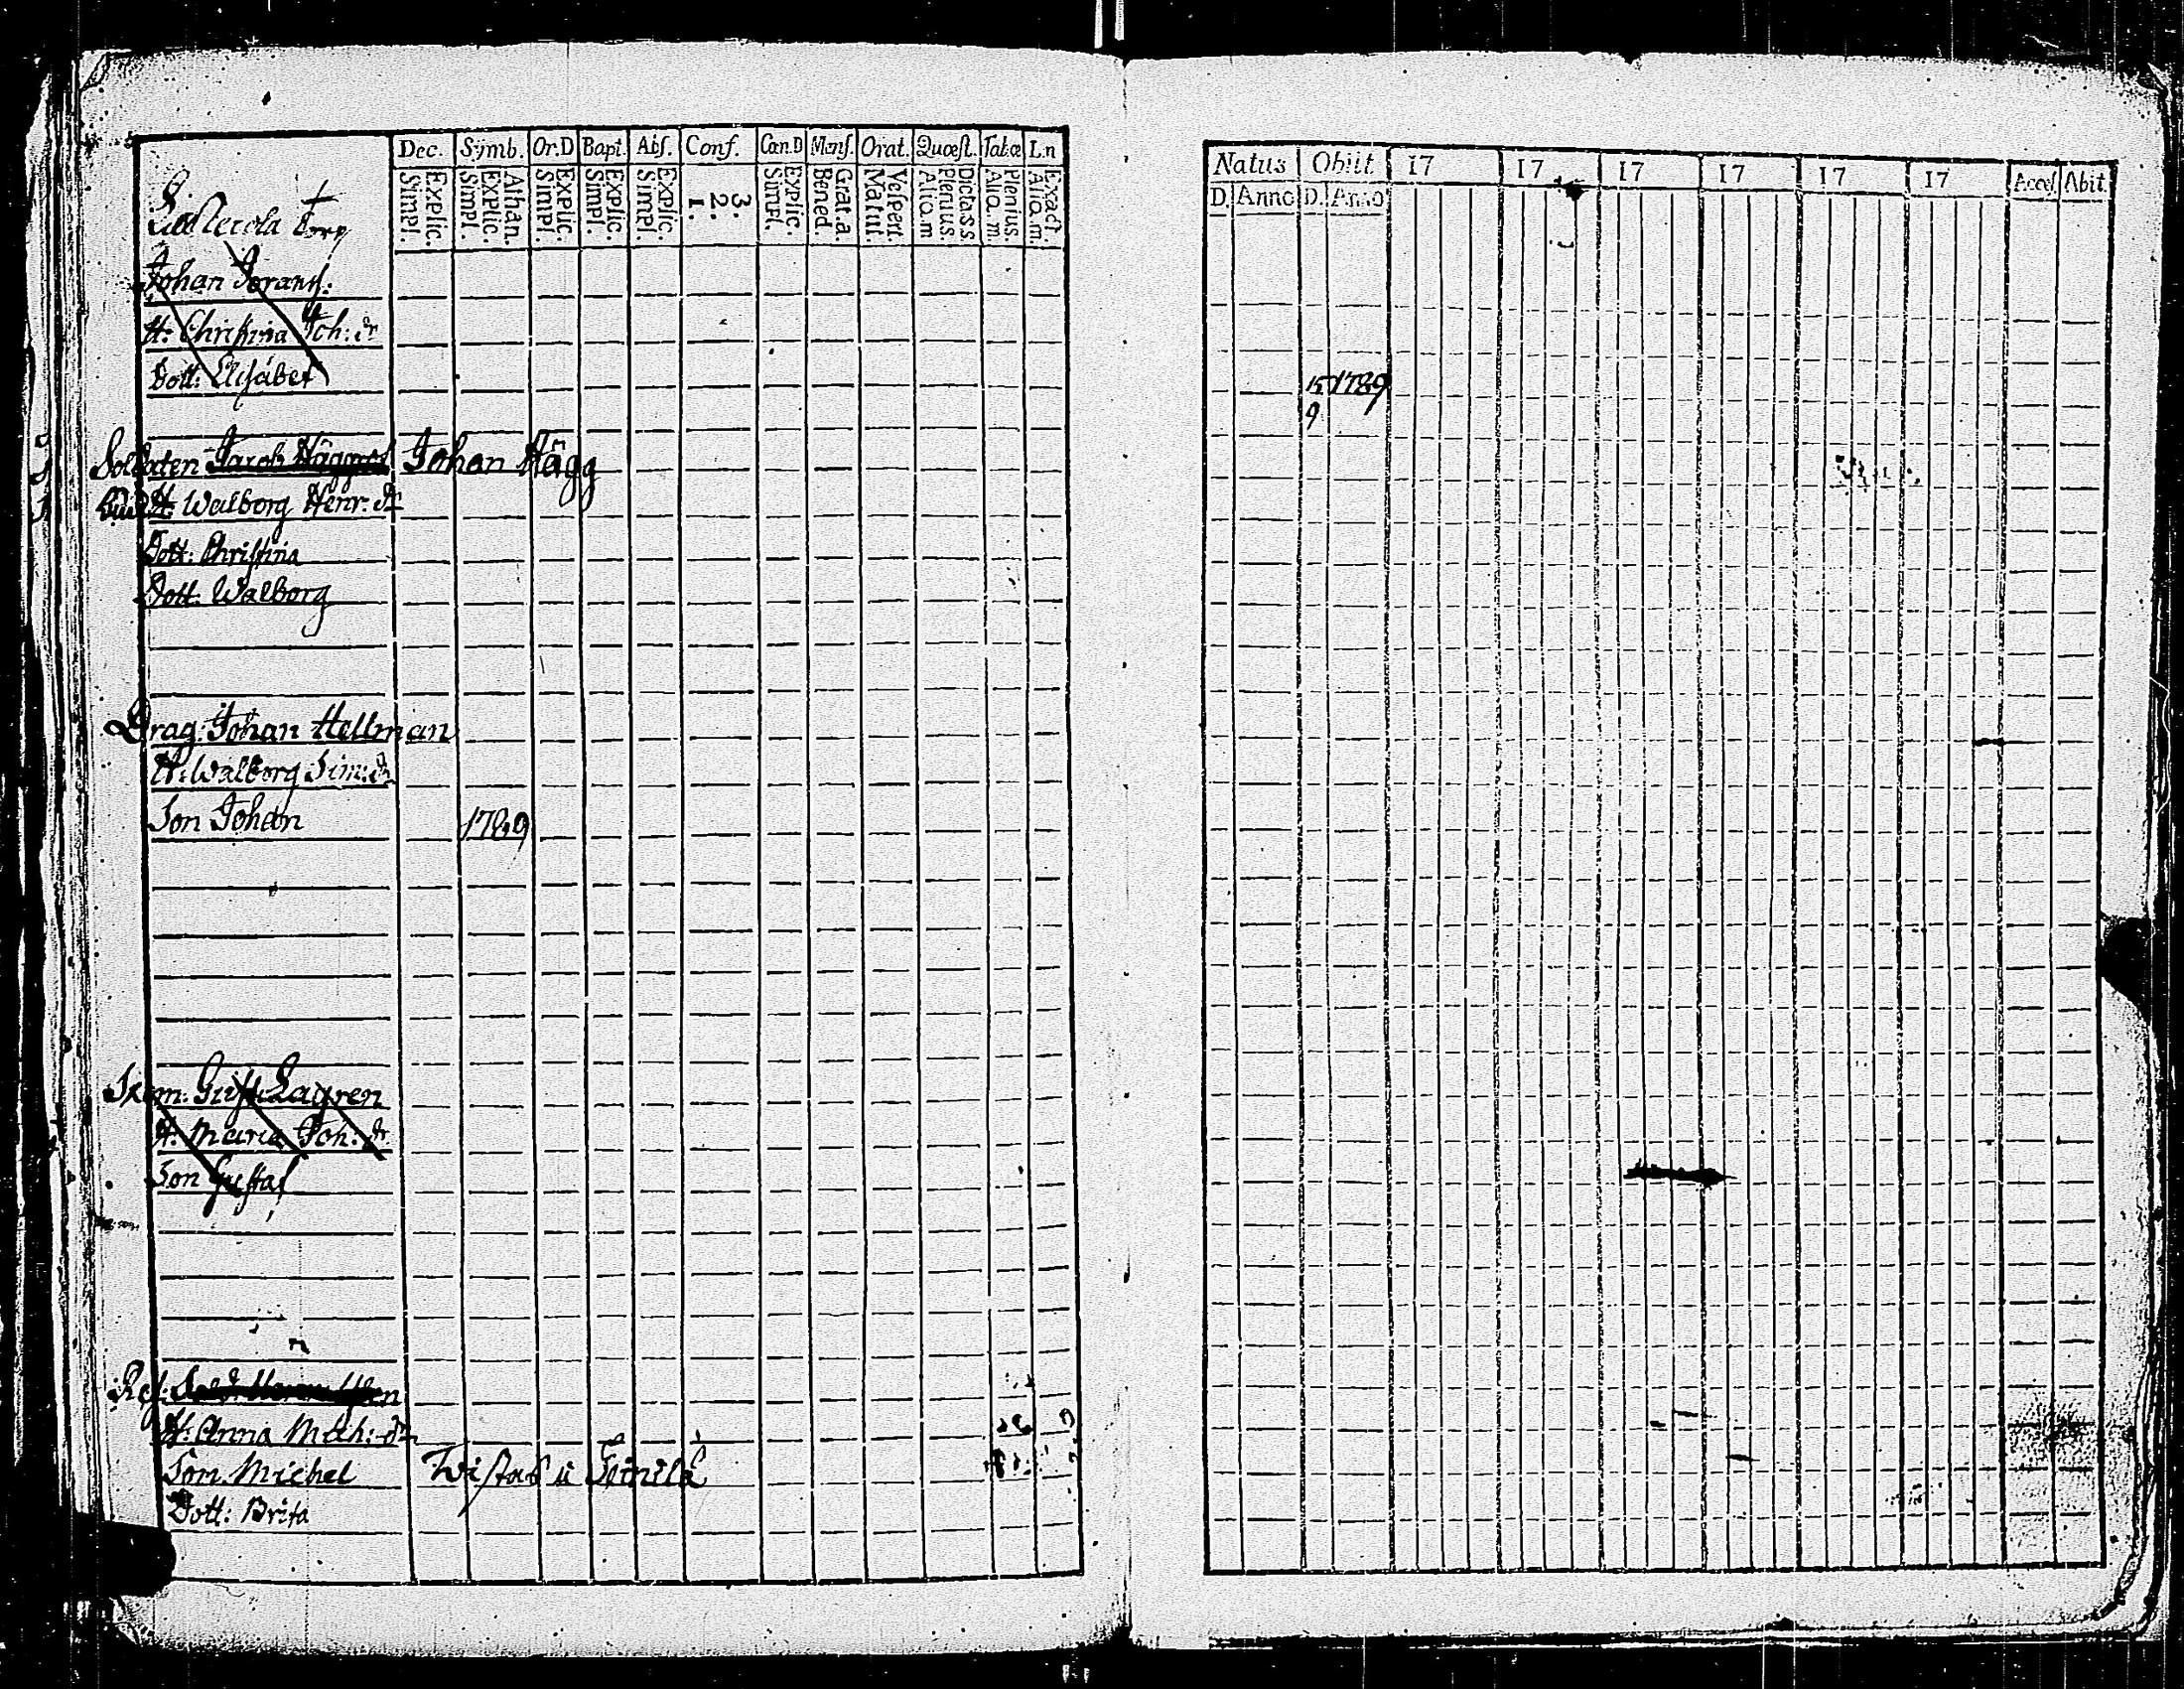 Dec. Symb. Or.D Bapt. Abs. Conf. Cœn.D Mens. Orat. Quæst. Tab.œ L.n
Explic. Simpl. Athan. Explic. Simpl. Explic. Simpl. Explic. Simpl. Explic. Simpl. 3. 2. 1. Explic. Simpl. Grat.a. Bened. Vespert. Matut. Dicta.s.s. Plenius. Alio.m. Plenius. Alia.m. Exact. Alio.m.
Torp
Johan
H: Christina Joh: dr
Dott: Elisabet
Soldaten Jacob Johan Hägg
H: Walborg Henr: dr
Dott: Christina
Dott: Walborg
Drag: Johan Hellman
H: Walborg Sim: dr
Son Johan 1789
Gust: Lagren
H: Maria Joh: dr
Son Gustaf
H: Anna Mich: dr
Son Michel
Dott: Brita
Natus Obiit 17 17 17 17 17 17 Acces. Abit
D. Anno D. Anno
15 1789
9